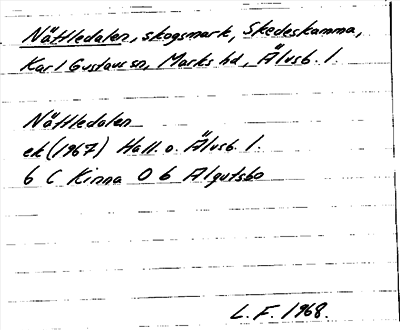 Nättledalen, skogsmark, Skedeskamma,
Karl Gustavs sn, Marks hd, Älvsb. l.
Nättledalen
ek (1967) Hall. o. Älvsb. l.
6 C Kinna 0 b Algutsbo
L.F. 1968.